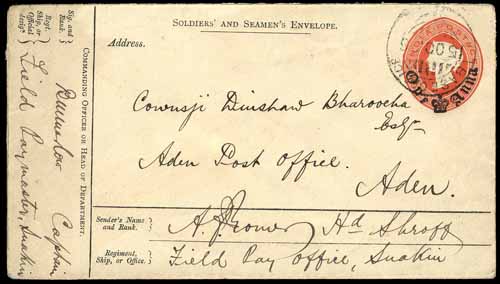 SOLDIERS' AND SEAMEN'S ENVELOPE.
Address.
Cowasji Dinshaw Bharoocha
Esqr
Aden Post Office.
Aden.
Sender's Name and Rank.
A. Hd Shroff
Regiment, Ship, or Office.
Field Pay Office, Suakin
Sig. and Rank.
Regt. Ship, or Official design
Captain
Field Paymaster, Suakin
COMMANDING OFFICER OR HEAD OF DEPARTMENT.
One Anna